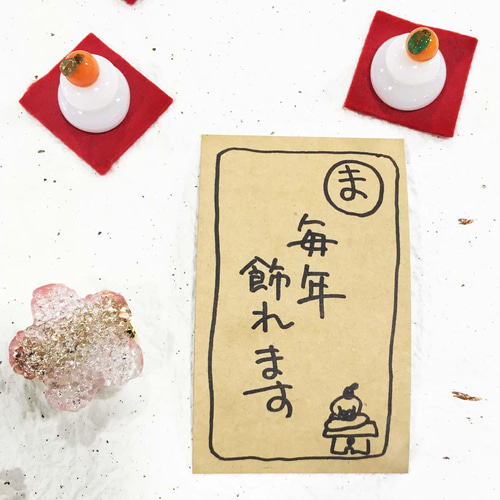 ま
毎年
飾れます